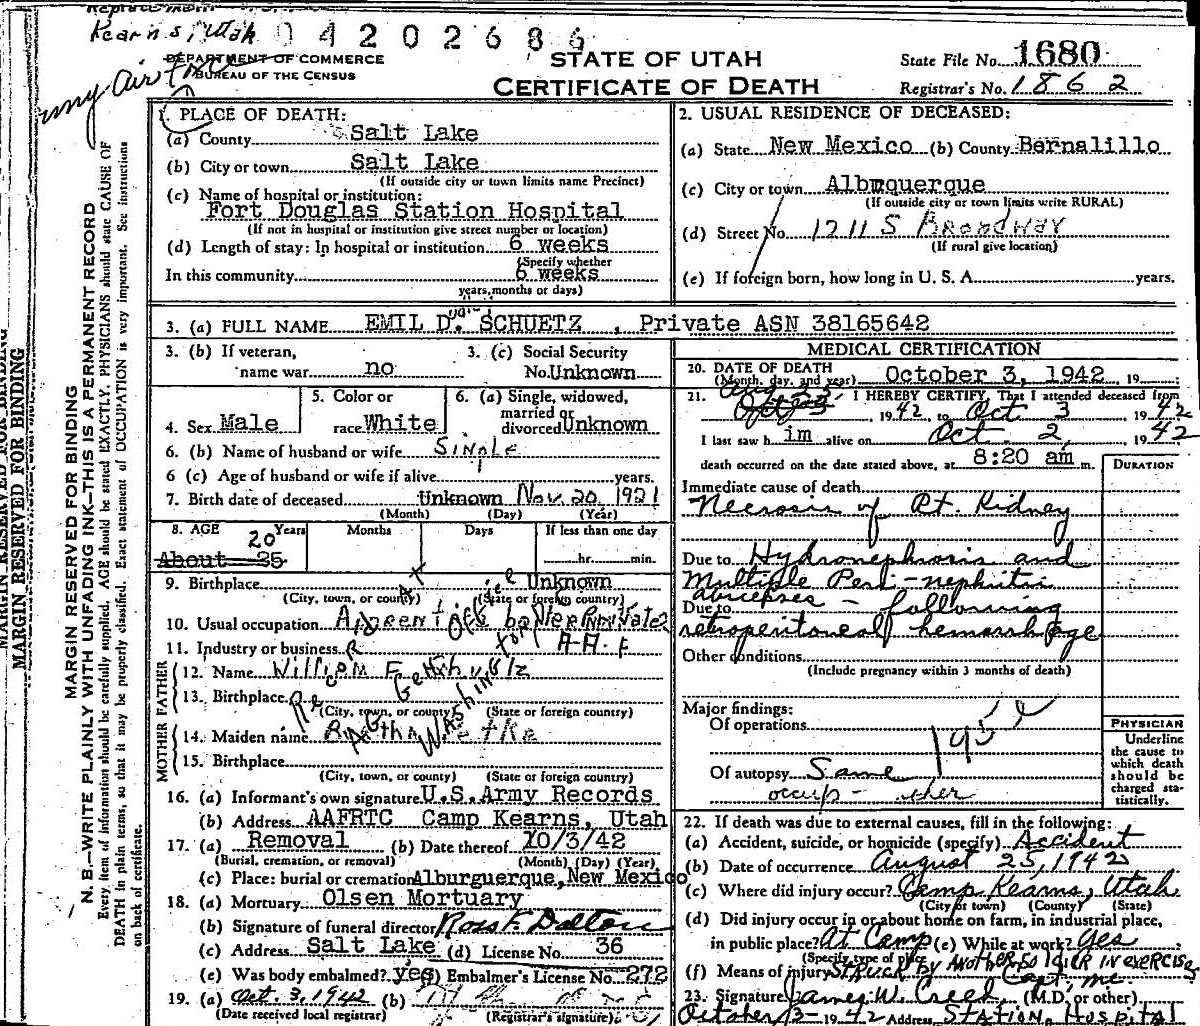 Kearns, Utah 04202686
Army Air Force
DEPARTMENT OF COMMERCE
BUREAU OF THE CENSUS
STATE OF UTAH
CERTIFICATE OF DEATH
State File No. 1680
Registrar's No. 1862
MARGIN RESERVED FOR BINDING
MARGIN RESERVED FOR BINDING
N. B.—WRITE PLAINLY WITH UNFADING INK—THIS IS A PERMANENT RECORD
Every item of information should be carefully supplied. AGE should be stated EXACTLY. PHYSICIANS should state CAUSE OF
DEATH in plain terms, so that it may be properly classified. Exact statement of OCCUPATION is very important. See instructions
on back of certificate.
1. PLACE OF DEATH:
(a) County Salt Lake
(b) City or town Salt Lake
(If outside city or town limits name Precinct)
(c) Name of hospital or institution:
Fort Douglas Station Hospital
(If not in hospital or institution give street number or location)
(d) Length of stay: In hospital or institution 6 weeks
(Specify whether
In this community 6 weeks
years, months or days)
2. USUAL RESIDENCE OF DECEASED:
(a) State New Mexico (b) County Bernalillo
(c) City or town Albuquerque
(If outside city or town limits write RURAL)
(d) Street No. 1211 S Broadway
(If rural give location)
(e) If foreign born, how long in U. S. A. years.
3. (a) FULL NAME EMIL D. SCHUETZ , Private ASN 38165642
3. (b) If veteran,
name war no
3. (c) Social Security
No. Unknown
4. Sex Male
5. Color or
race White
6. (a) Single, widowed,
married or
divorced Unknown
6. (b) Name of husband or wife Single
6 (c) Age of husband or wife if alive years.
7. Birth date of deceased Unknown Nov. 20 1921
(Month) (Day) (Year)
8. AGE 20 Years Months Days If less than one day
About 25 hr. min.
9. Birthplace Unknown
(City, town, or county) (State or foreign country)
10. Usual occupation Private
11. Industry or business A.A.F
FATHER
12. Name William F
13. Birthplace
(City, town, or county) (State or foreign country)
MOTHER
14. Maiden name
15. Birthplace Washington
(City, town, or county) (State or foreign country)
16. (a) Informant's own signature U.S. Army Records
(b) Address AAFRTC Camp Kearns, Utah
17. (a) Removal (b) Date thereof 10/3/42
(Burial, cremation, or removal) (Month) (Day) (Year)
(c) Place: burial or cremation Alburguerque, New Mexico
18. (a) Mortuary Olsen Mortuary
(b) Signature of funeral director Ross F. Dalton
(c) Address Salt Lake (d) License No. 36
(e) Was body embalmed? yes (f) Embalmer's License No. 272
19. (a) Oct. 3, 1942 (b)
(Date received local registrar) (Registrar's signature)
MEDICAL CERTIFICATION
20. DATE OF DEATH
(Month, day, and year) October 3, 1942 19
Aug 25
21. I HEREBY CERTIFY, That I attended deceased from
Oct 3 1942 to Oct 3 1942
I last saw him alive on Oct. 2, 1942
death occurred on the date stated above, at 8:20 am m.
DURATION
Immediate cause of death
Necrosis of Rt. Kidney
Due to Hydronephrosis and
Multiple Peri-nephritic
abscesses - following
Due to
retroperitoneal hemorrhage
Other conditions
(Include pregnancy within 3 months of death)
Major findings:
Of operations
195
Of autopsy Same
occup - other
PHYSICIAN
Underline
the cause to
which death
should be
charged sta-
tistically.
22. If death was due to external causes, fill in the following:
(a) Accident, suicide, or homicide (specify) Accident
(b) Date of occurrence August 25, 1942
(c) Where did injury occur? Camp Kearns, Utah
(City or town) (County) (State)
(d) Did injury occur in or about home on farm, in industrial place,
in public place? At Camp (e) While at work? Yes
(Specify type of place)
(f) Means of injury Struck by another soldier in exercise
Capt, MC.
23. Signature James W. Creed (M.D. or other)
October 3- 1942 Address Station Hospital